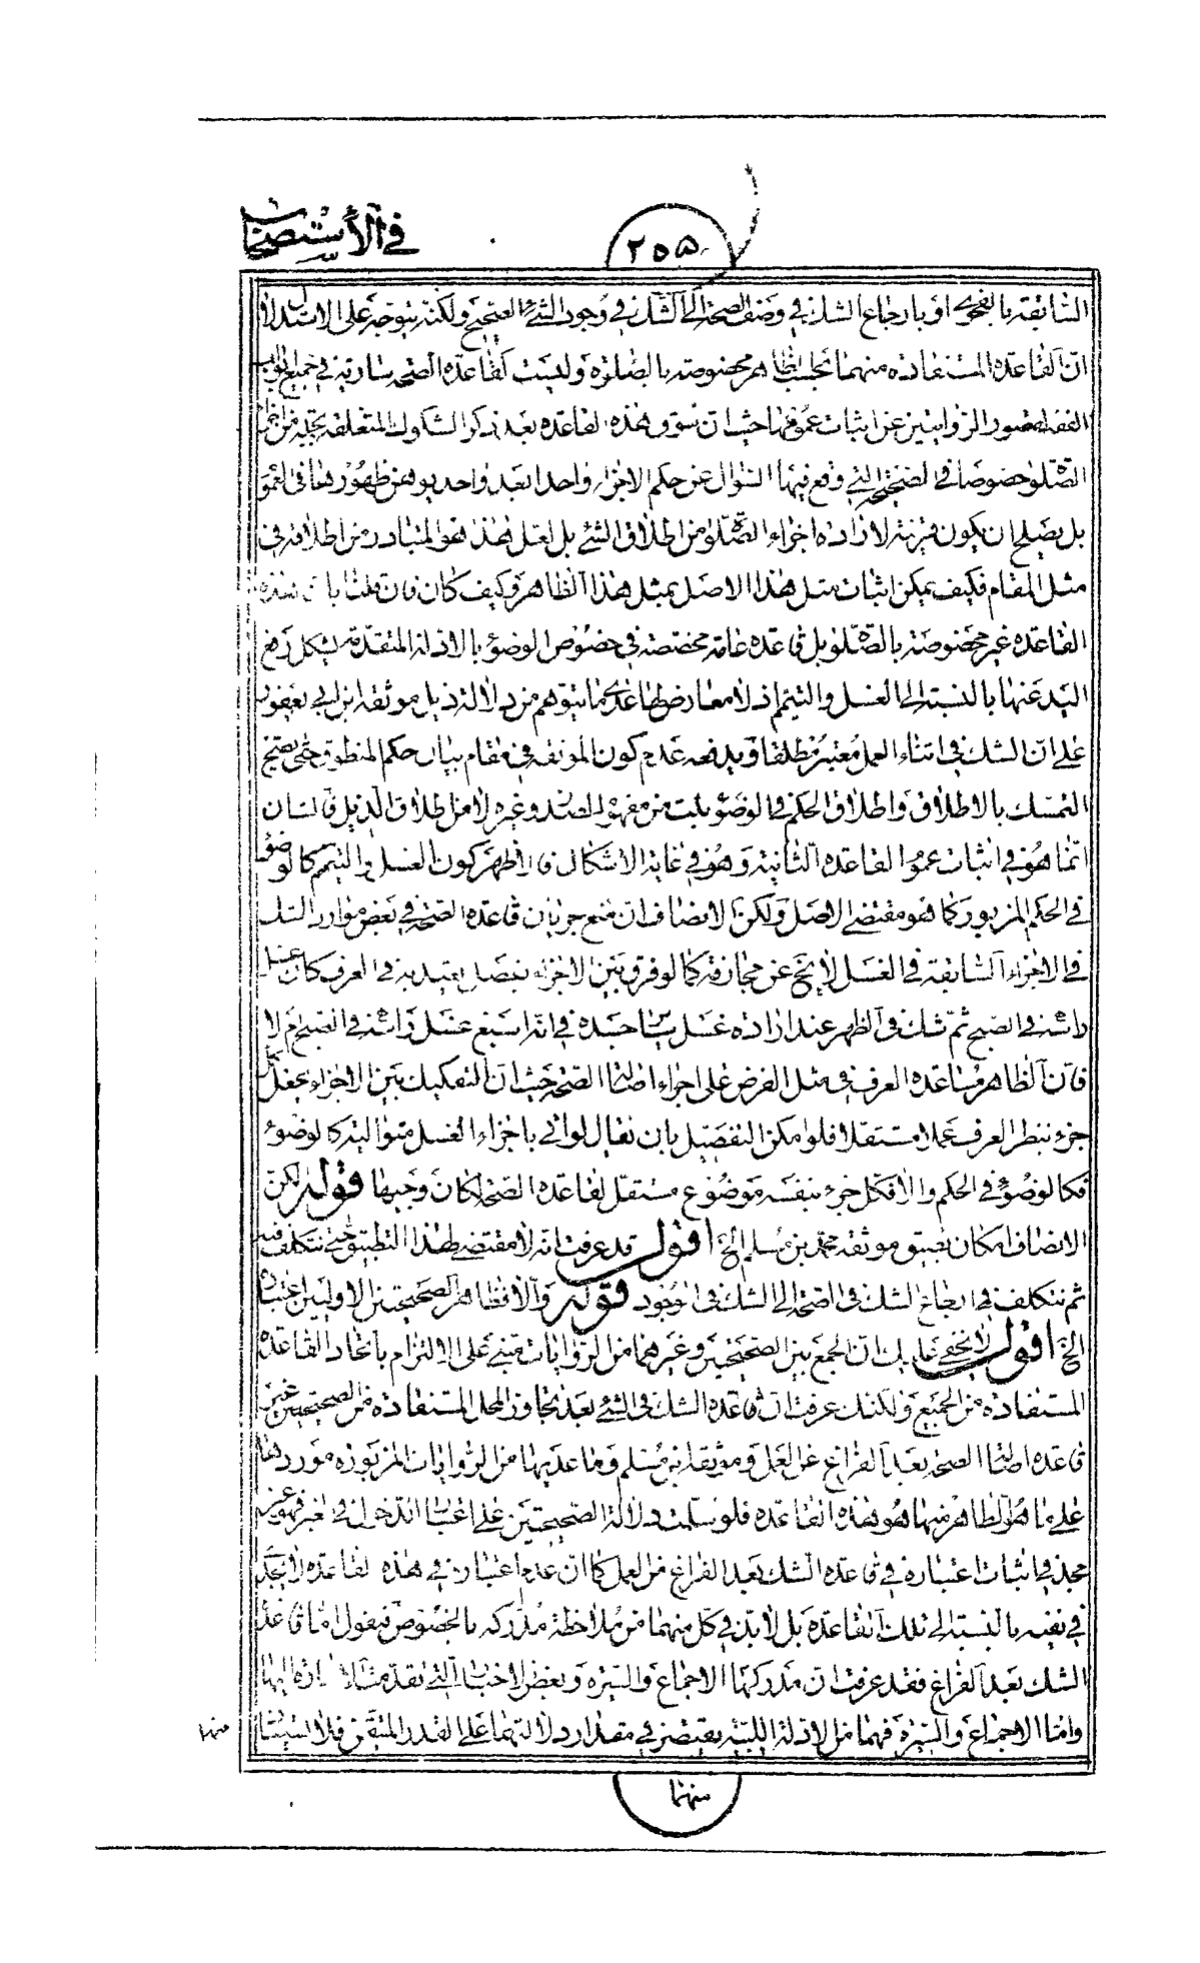 ٢٥٥
في الاستصحاب
السابقة بالفحوى او بارجاع الشك في وصف الصحة الى الشك في وجود الشئ الصحيح ولكنه يتوجه على الاستدلال
ان القاعدة المستفادة منهما بحسب الظاهر مخصوصة بالصلوة وليست كقاعدة الصحة سارية في جميع ابواب
الفقه لقصور الروايتين عن اثبات عمومها حيث ان سوق هذه القاعدة بعد ذكر الشكوك المتعلقة
الصلوة خصوصا في الصحيحة التي وقع فيها السؤال عن حكم الاجزاء واحدا بعد واحد يوهن ظهورهما في العموم
بل يصلح ان يكون قرينة لارادة اجزاء الصلوة من اطلاق الشئ بل لعل هذا هو المتبادر من اطلاقه في
مثل المقام فكيف يمكن اثبات مثل هذا الاصل بمثل هذا الظاهر وكيف كان فان قلنا بان هذه
القاعدة غير مخصوصة بالصلوة بل قاعدة عامة مختصة في خصوص الوضوء بالادلة المتقدمة يشكل رفع
اليد عنها بالنسبة الى الغسل والتيمم اذ لا معارض لها عدى ما يتوهم من دلالة ذيل موثقة ابن ابي يعفور
على ان الشك في اثناء العمل معتبر مطلقا ويدفعه عدم كون الموثقة في مقام بيان حكم المنطوق حتى يصح
التمسك بالاطلاق واطلاق الحكم في الوضوء يثبت من مفهوم الصدر وغيره لا من اطلاق الذيل فالشان
انما هو في اثبات عموم القاعدة الثانية وهو في غاية الاشكال فالاظهر كون الغسل والتيمم كالوضوء
في الحكم المزبور كما هو مقتضى الاصل ولكن الانصاف ان منع جريان قاعدة الصحة في بعض موارد الشك
في الاجزاء السابقة في الغسل لا يخ عن مجازفة كما لو فرق بين الاجزاء بفصل يعتد به في العرف كان غسل
راسه في الصبح ثم شك في الظهر عند ارادة غسل سائر جسده في انه اسبغ غسل راسه في الصبح ام لا
فان الظاهر مساعدة العرف في مثل الفرض على اجراء اصالة الصحة حيث ان التفكيك بين الاجزاء يجعل كل
جزء بنظر العرف عملا مستقلا فلو امكن التفصيل بان يقال لو اتى باجزاء الغسل متوالية كالوضوء
فكالوضوء في الحكم والا فكل جزء بنفسه موضوع مستقل لقاعدة الصحة لكان وجيها قوله لكن
الانصاف امكان تطبيق موثقة محمد بن مسلم الخ اقول قد عرفت انه لا مقتضى لهذا التطبيق حتى نتكلف فيه
ثم نتكلف في ارجاع الشك في الصحة الى الشك في الوجود قوله والا فظاهر الصحيحتين الاوليين اعتباره
الخ اقول لا يخفى عليك ان الجمع بين الصحيحتين وغيرهما من الروايات مبنى على الالتزام باتحاد القاعدة
المستفادة من الجميع ولكنك عرفت ان قاعدة الشك في الشئ بعد تجاوز المحل المستفادة من الصحيحتين غير
قاعدة اصالة الصحة بعد الفراغ عن العمل وموثقة ابن مسلم وما عديها من الروايات المزبورة موردها
على ما هو الظاهر منها هو هذه القاعدة فلو سلمت دلالة الصحيحتين على اعتبار الدخول في الغير فهو غير
مجد في اثبات اعتباره في قاعدة الشك بعد الفراغ من العمل كما ان عدم اعتباره في هذه القاعدة لا يجدي
في نفيه بالنسبة الى تلك القاعدة بل لا بد في كل منهما من ملاحظة مدركه بالخصوص فنقول اما قاعدة
الشك بعد الفراغ فقد عرفت ان مدركها الاجماع والسيرة وبعض الاخبار التي تقدمت الاشارة اليها
واما الاجماع والسيرة فهما من الادلة اللبية يقتصر في مقدار دلالتهما على القدر المتيقن فلا
منهما
منهما